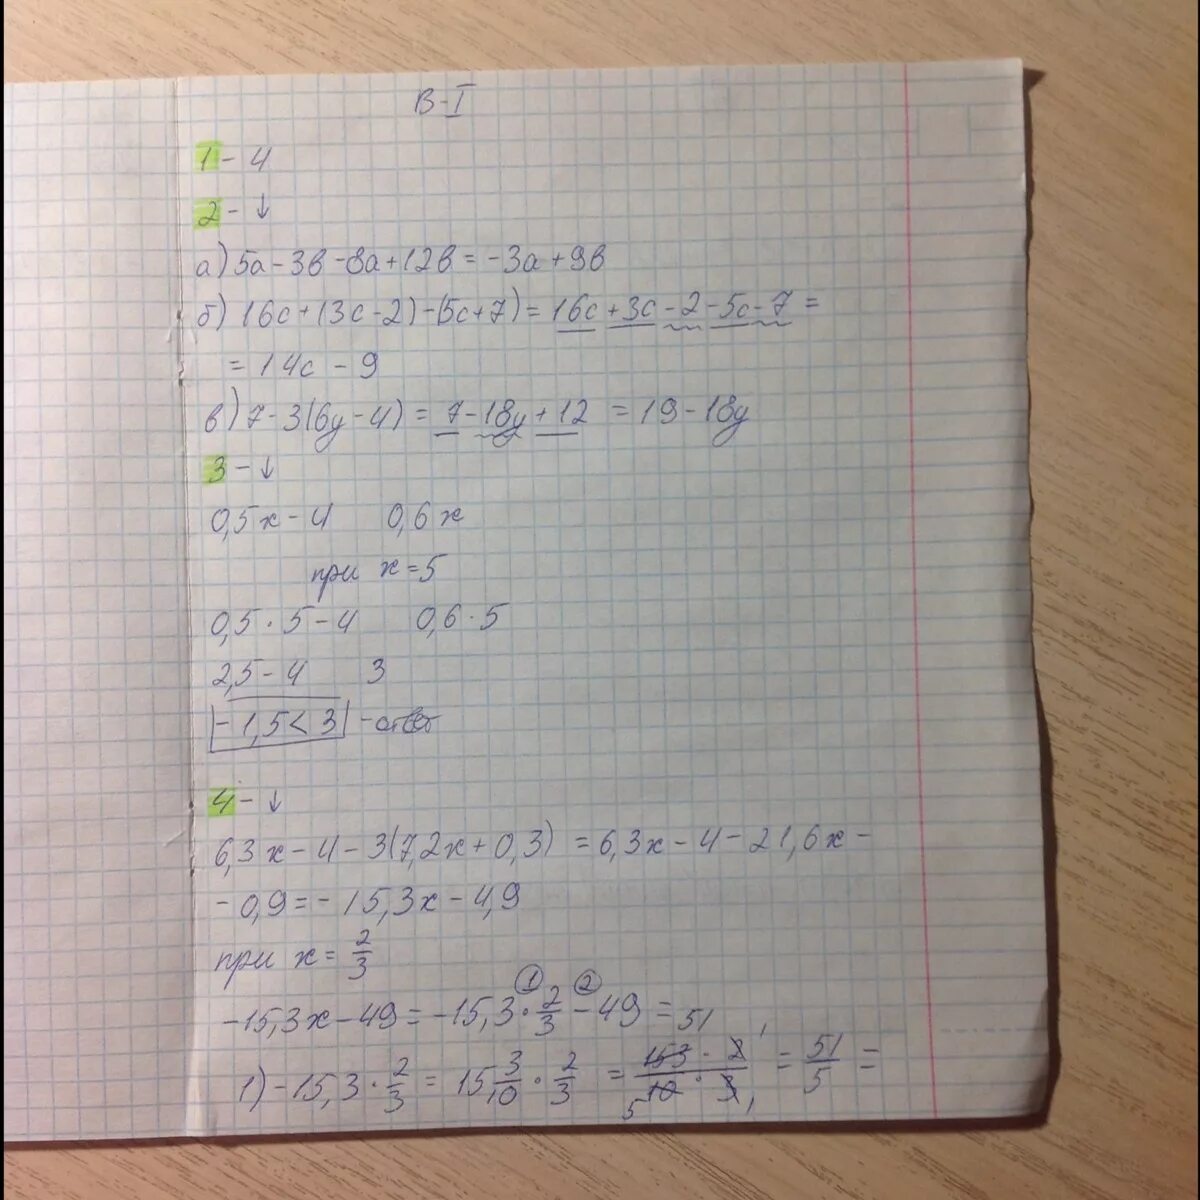 В-I
1 - 4
2 - ↓
а) 5а - 3в - 8а + 12в = -3а + 9в
б) 16с + (3с - 2) - (5с + 7) = 16с + 3с - 2 - 5с - 7 =
= 14с - 9
в) 7 - 3(6у - 4) = 7 - 18у + 12 = 19 - 18у
3 - ↓
0,5х - 4 0,6х
при х = 5
0,5 · 5 - 4 0,6 · 5
2,5 - 4 3
- 1,5 < 3 - ответ
4 - ↓
6,3х - 4 - 3(7,2х + 0,3) = 6,3х - 4 - 21,6х -
- 0,9 = - 15,3х - 4,9
при х = 2/3
① ②
-15,3х - 49 = -15,3 · 2/3 - 49 =
1) -15,3 · 2/3 = 15 3/10 · 2/3 = 153 51 · 2 1 / 10 5 · 3 1 = 51/5 =